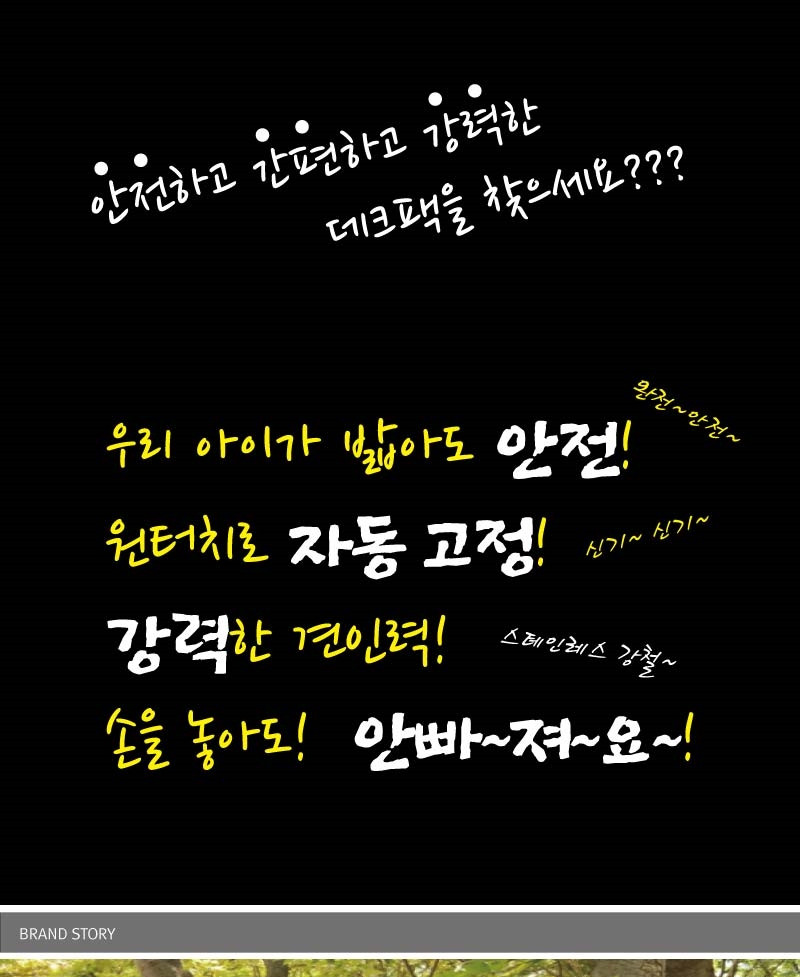 안전하고 간편하고 강력한
데크팩을 찾으세요???
완전~안전~
우리 아이가 밟아도 안전!
원터치로 자동 고정! 신기~ 신기~
강력한 견인력! 스테인레스 강철~
손을 놓아도! 안빠~져~요~!
BRAND STORY